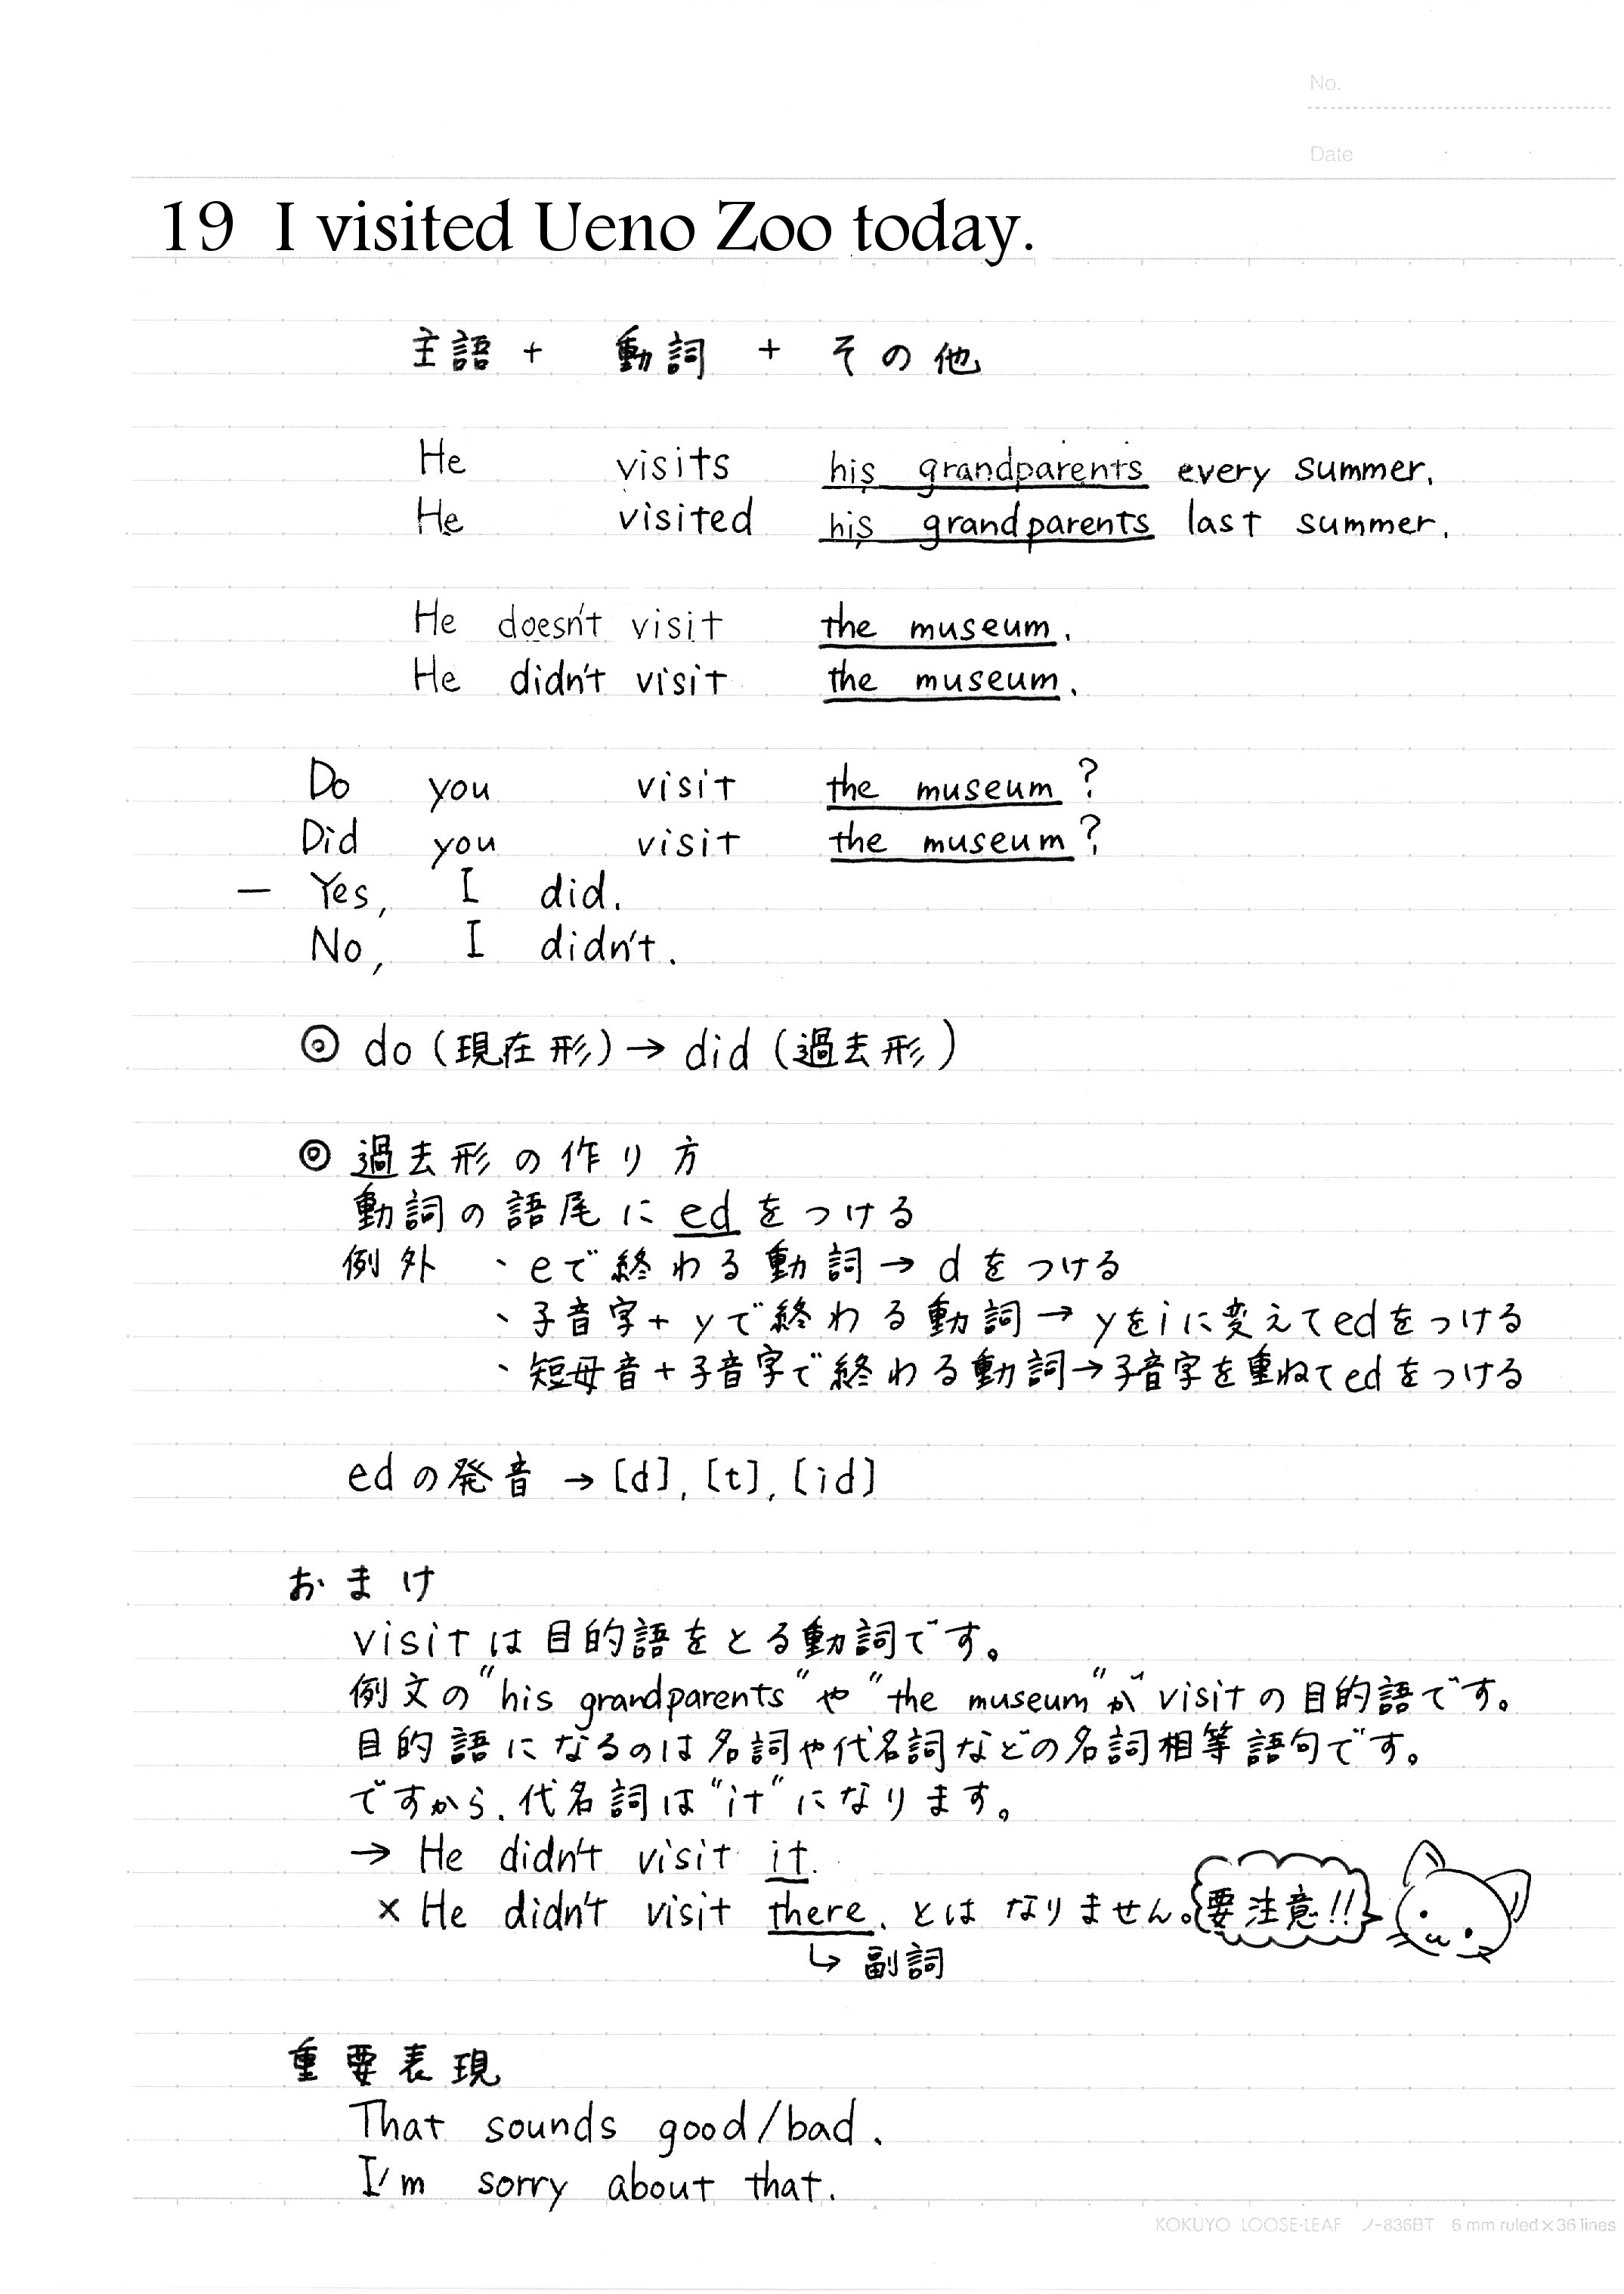 No.
Date
19 I visited Ueno Zoo today.
主語 + 動詞 + その他
He visits his grandparents every summer.
He visited his grandparents last summer.
He doesn't visit the museum.
He didn't visit the museum.
Do you visit the museum?
Did you visit the museum?
— Yes, I did.
No, I didn't.
◎ do (現在形) → did (過去形)
◎ 過去形の作り方
動詞の語尾に ed をつける
例外 、eで終わる動詞 → d をつける
、子音字 + y で終わる動詞 → yをiに変えてedをつける
、短母音 + 子音字で終わる動詞 → 子音字を重ねてedをつける
ed の発音 → [d], [t], [id]
おまけ
visit は目的語をとる動詞です。
例文の"his grandparents"や"the museum"が visit の目的語です。
目的語になるのは名詞や代名詞などの名詞相等語句です。
ですから、代名詞は"it"になります。
→ He didn't visit it.
× He didn't visit there. とはなりません。要注意!!
↳ 副詞
重要表現
That sounds good/bad.
I'm sorry about that.
KOKUYO LOOSE-LEAF ノ-836BT 6 mm ruled×36 lines